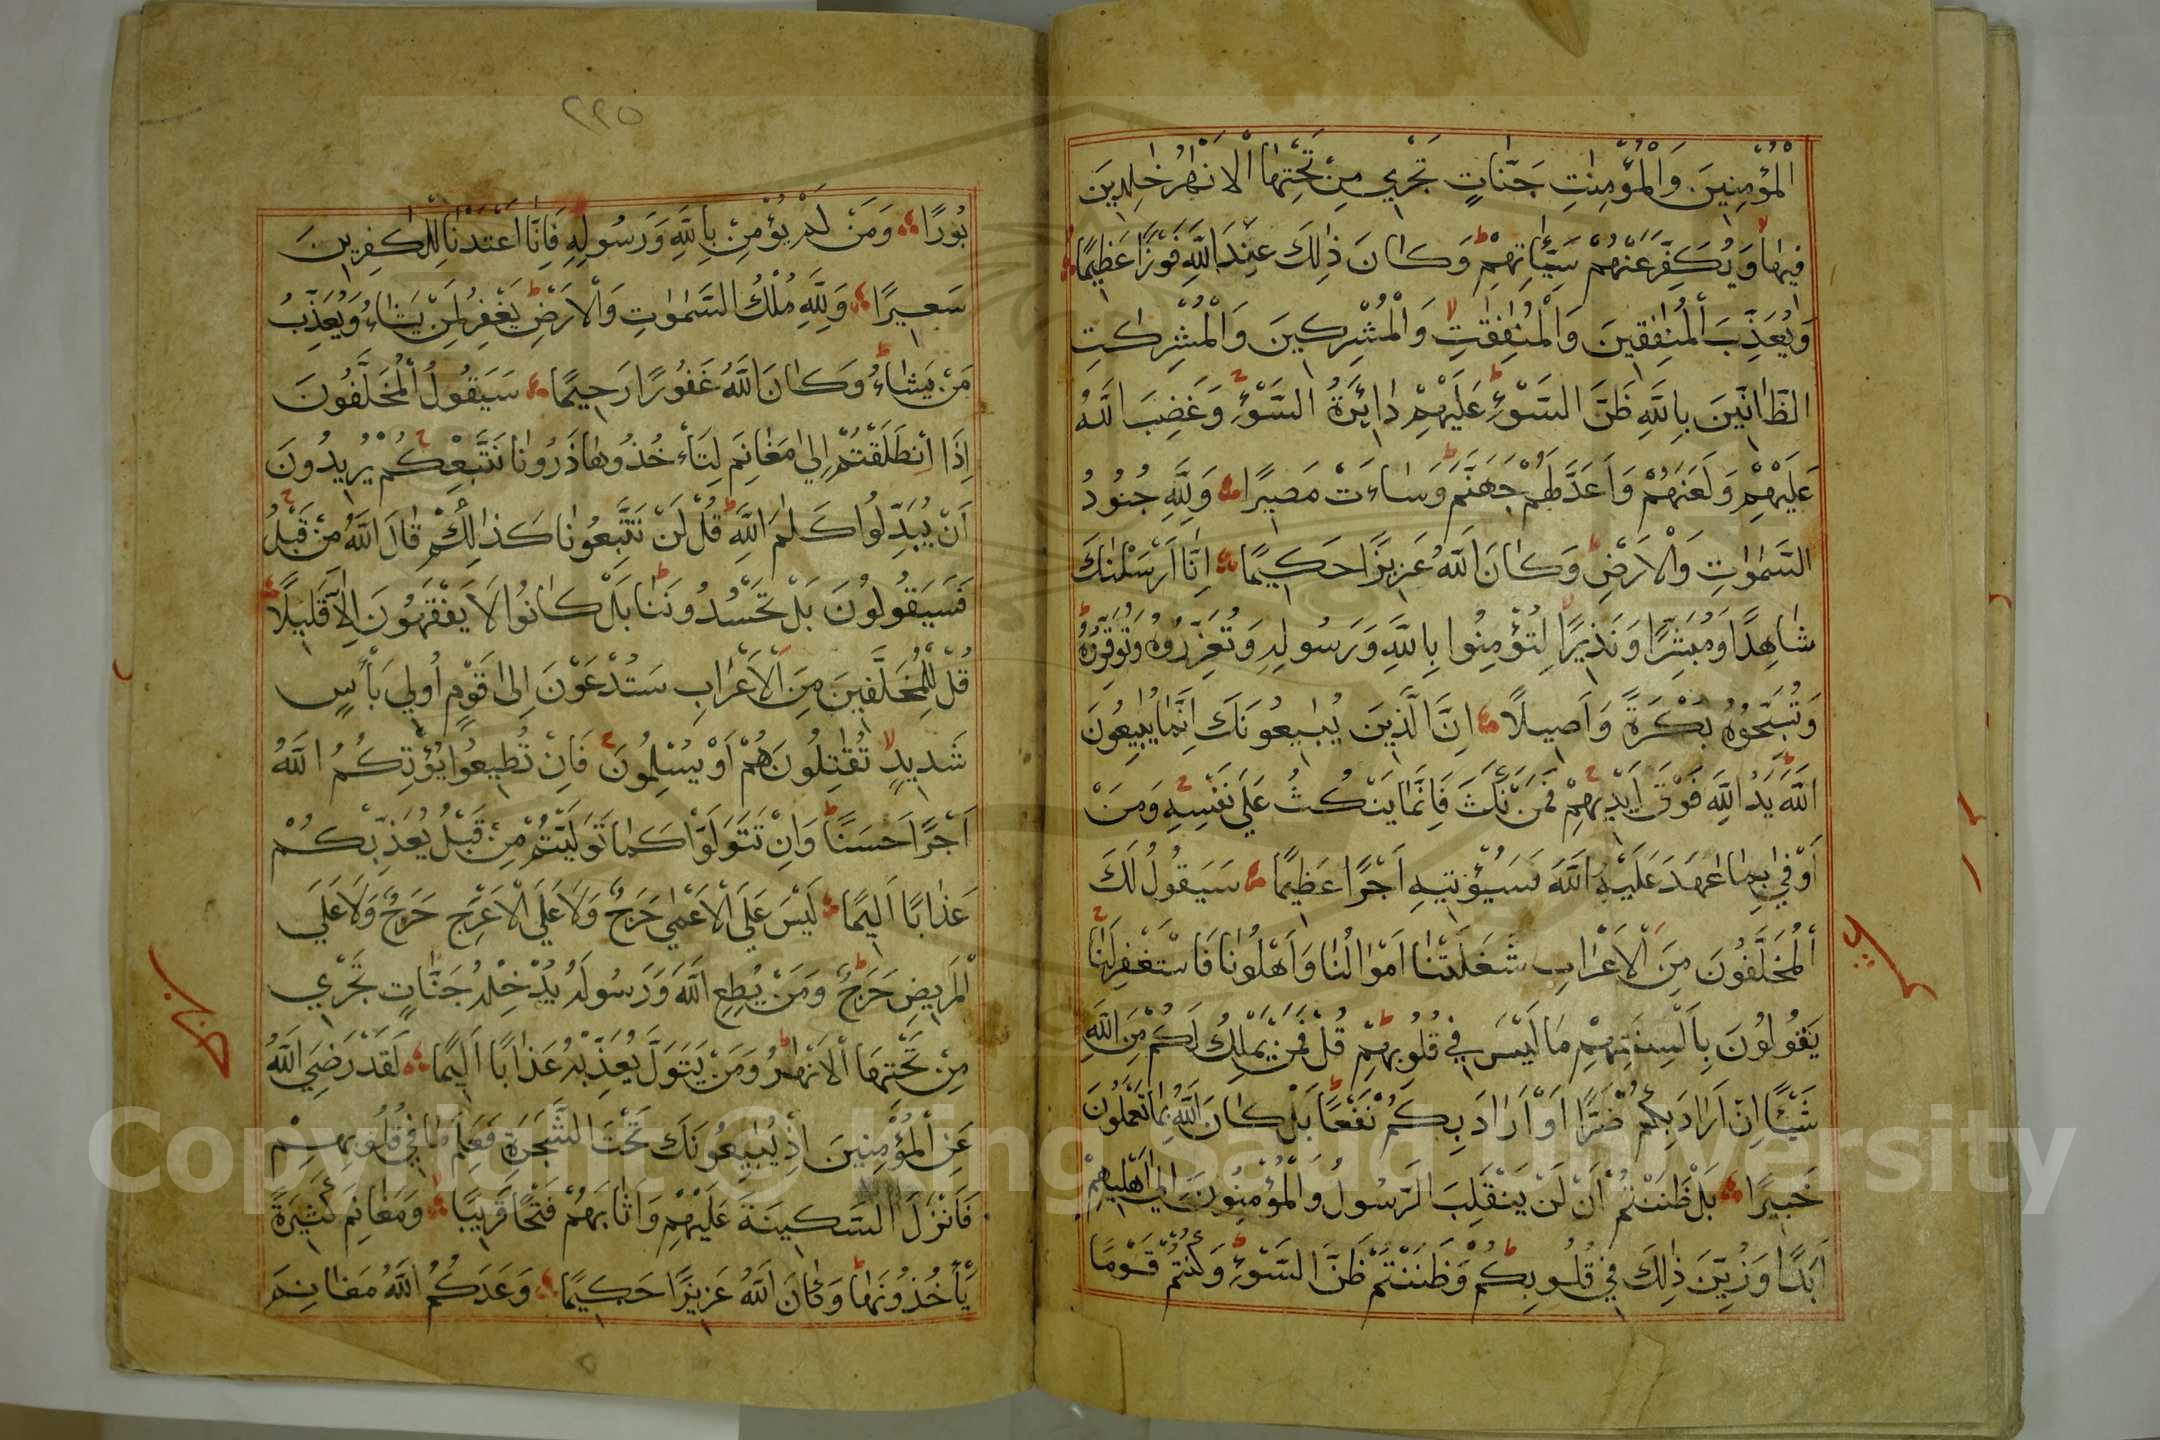 الْمُؤْمِنِينَ وَالْمُؤْمِنٰتِ جَنّٰاتٍ تَجْرِي مِنْ تَحْتِهٰا الْاَنْهٰرُ خٰلِدِينَ
فِيهٰا وَيُكَفِّرَ عَنْهُمْ سَيِّئٰاتِهِمْ وَكٰانَ ذٰلِكَ عِنْدَ اللَّهِ فَوْزًا عَظِيمًا
وَيُعَذِّبَ الْمُنٰفِقِينَ وَالْمُنٰفِقٰتِ وَالْمُشْرِكِينَ وَالْمُشْرِكٰتِ
الظّٰانِّينَ بِاللَّهِ ظَنَّ السَّوْءِ عَلَيْهِمْ دٰائِرَةُ السَّوْءِ وَغَضِبَ اللَّهُ
عَلَيْهِمْ وَلَعَنَهُمْ وَاَعَدَّ لَهُمْ جَهَنَّمَ وَسٰاءَتْ مَصِيرًا وَلِلَّهِ جُنُودُ
السَّمٰوٰاتِ وَالْاَرْضِ وَكٰانَ اللَّهُ عَزِيزًا حَكِيمًا اِنّٰا اَرْسَلْنٰكَ
شٰاهِدًا وَمُبَشِّرًا وَنَذِيرًا لِتُؤْمِنُوا بِاللَّهِ وَرَسُولِهِ وَتُعَزِّرُوهُ وَتُوَقِّرُوهُ
وَتُسَبِّحُوهُ بُكْرَةً وَاَصِيلًا اِنَّ الَّذِينَ يُبٰايِعُونَكَ اِنَّمٰا يُبٰايِعُونَ
اللَّهَ يَدُ اللَّهِ فَوْقَ اَيْدِيهِمْ فَمَنْ نَكَثَ فَاِنَّمٰا يَنْكُثُ عَلٰي نَفْسِهِ وَمَنْ
اَوْفٰي بِمٰا عٰهَدَ عَلَيْهُ اللَّهَ فَسَيُؤْتِيهِ اَجْرًا عَظِيمًا سَيَقُولُ لَكَ
الْمُخَلَّفُونَ مِنَ الْاَعْرٰابِ شَغَلَتْنٰا اَمْوٰالُنٰا وَاَهْلُونٰا فَاسْتَغْفِرْ لَنٰا
يَقُولُونَ بِاَلْسِنَتِهِمْ مٰا لَيْسَ فِي قُلُوبِهِمْ قُلْ فَمَنْ يَمْلِكُ لَكُمْ مِنَ اللَّهِ
شَيْئًا اِنْ اَرٰادَ بِكُمْ ضَرًّا اَوْ اَرٰادَ بِكُمْ نَفْعًا بَلْ كٰانَ اللَّهُ بِمٰا تَعْمَلُونَ
خَبِيرًا بَلْ ظَنَنْتُمْ اَنْ لَنْ يَنْقَلِبَ الرَّسُولُ وَالْمُؤْمِنُونَ اِلٰي اَهْلِيهِمْ
اَبَدًا وَزُيِّنَ ذٰلِكَ فِي قُلُوبِكُمْ وَظَنَنْتُمْ ظَنَّ السَّوْءِ وَكُنْتُمْ قَوْمًا
٢٢٥
بُورًا وَمَنْ لَمْ يُؤْمِنْ بِاللَّهِ وَرَسُولِهِ فَاِنّٰا اَعْتَدْنٰا لِلْكٰفِرِينَ
سَعِيرًا وَلِلَّهِ مُلْكُ السَّمٰوٰتِ وَالْاَرْضِ يَغْفِرُ لِمَنْ يَشٰاءُ وَيُعَذِّبُ
مَنْ يَشٰاءُ وَكٰانَ اللَّهُ غَفُورًا رَحِيمًا سَيَقُولُ الْمُخَلَّفُونَ
اِذَا انْطَلَقْتُمْ اِلٰي مَغٰانِمَ لِتَأْخُذُوهٰا ذَرُونٰا نَتَّبِعْكُمْ يُرِيدُونَ
اَنْ يُبَدِّلُوا كَلٰمَ اللَّهِ قُلْ لَنْ تَتَّبِعُونٰا كَذٰلِكُمْ قٰالَ اللَّهُ مِنْ قَبْلُ
فَسَيَقُولُونَ بَلْ تَحْسُدُونَنٰا بَلْ كٰانُوا لَا يَفْقَهُونَ اِلَّا قَلِيلًا
قُلْ لِلْمُخَلَّفِينَ مِنَ الْاَعْرٰابِ سَتُدْعَوْنَ اِلٰى قَوْمٍ اُولِي بَأْسٍ
شَدِيدٍ تُقٰتِلُونَهُمْ اَوْ يُسْلِمُونَ فَاِنْ تُطِيعُوا يُؤْتِكُمُ اللَّهُ
اَجْرًا حَسَنًا وَاِنْ تَتَوَلَّوْا كَمٰا تَوَلَّيْتُمْ مِنْ قَبْلُ يُعَذِّبْكُمْ
عَذٰابًا اَلِيمًا لَيْسَ عَلَي الْاَعْمٰي حَرَجٌ وَلَا عَلَي الْاَعْرَجِ حَرَجٌ وَلَا عَلَي
الْمَرِيضِ حَرَجٌ وَمَنْ يُطِعِ اللَّهَ وَرَسُولَهُ يُدْخِلْهُ جَنّٰاتٍ تَجْرِي
مِنْ تَحْتِهَا الْاَنْهٰرُ وَمَنْ يَتَوَلَّ يُعَذِّبْهُ عَذٰابًا اَلِيمًا لَقَدْ رَضِيَ اللَّهُ
عَنِ الْمُؤْمِنِينَ اِذْ يُبٰايِعُونَكَ تَحْتَ الشَّجَرَةِ فَعَلِمَ مٰا فِي قُلُوبِهِمْ
فَاَنْزَلَ السَّكِينَةَ عَلَيْهِمْ وَاَثٰابَهُمْ فَتْحًا قَرِيبًا وَمَغٰانِمَ كَثِيرَةً
يَأْخُذُونَهٰا وَكٰانَ اللَّهُ عَزِيزًا حَكِيمًا وَعَدَكُمُ اللَّهُ مَغٰانِمَ
Copyright © King Saud University